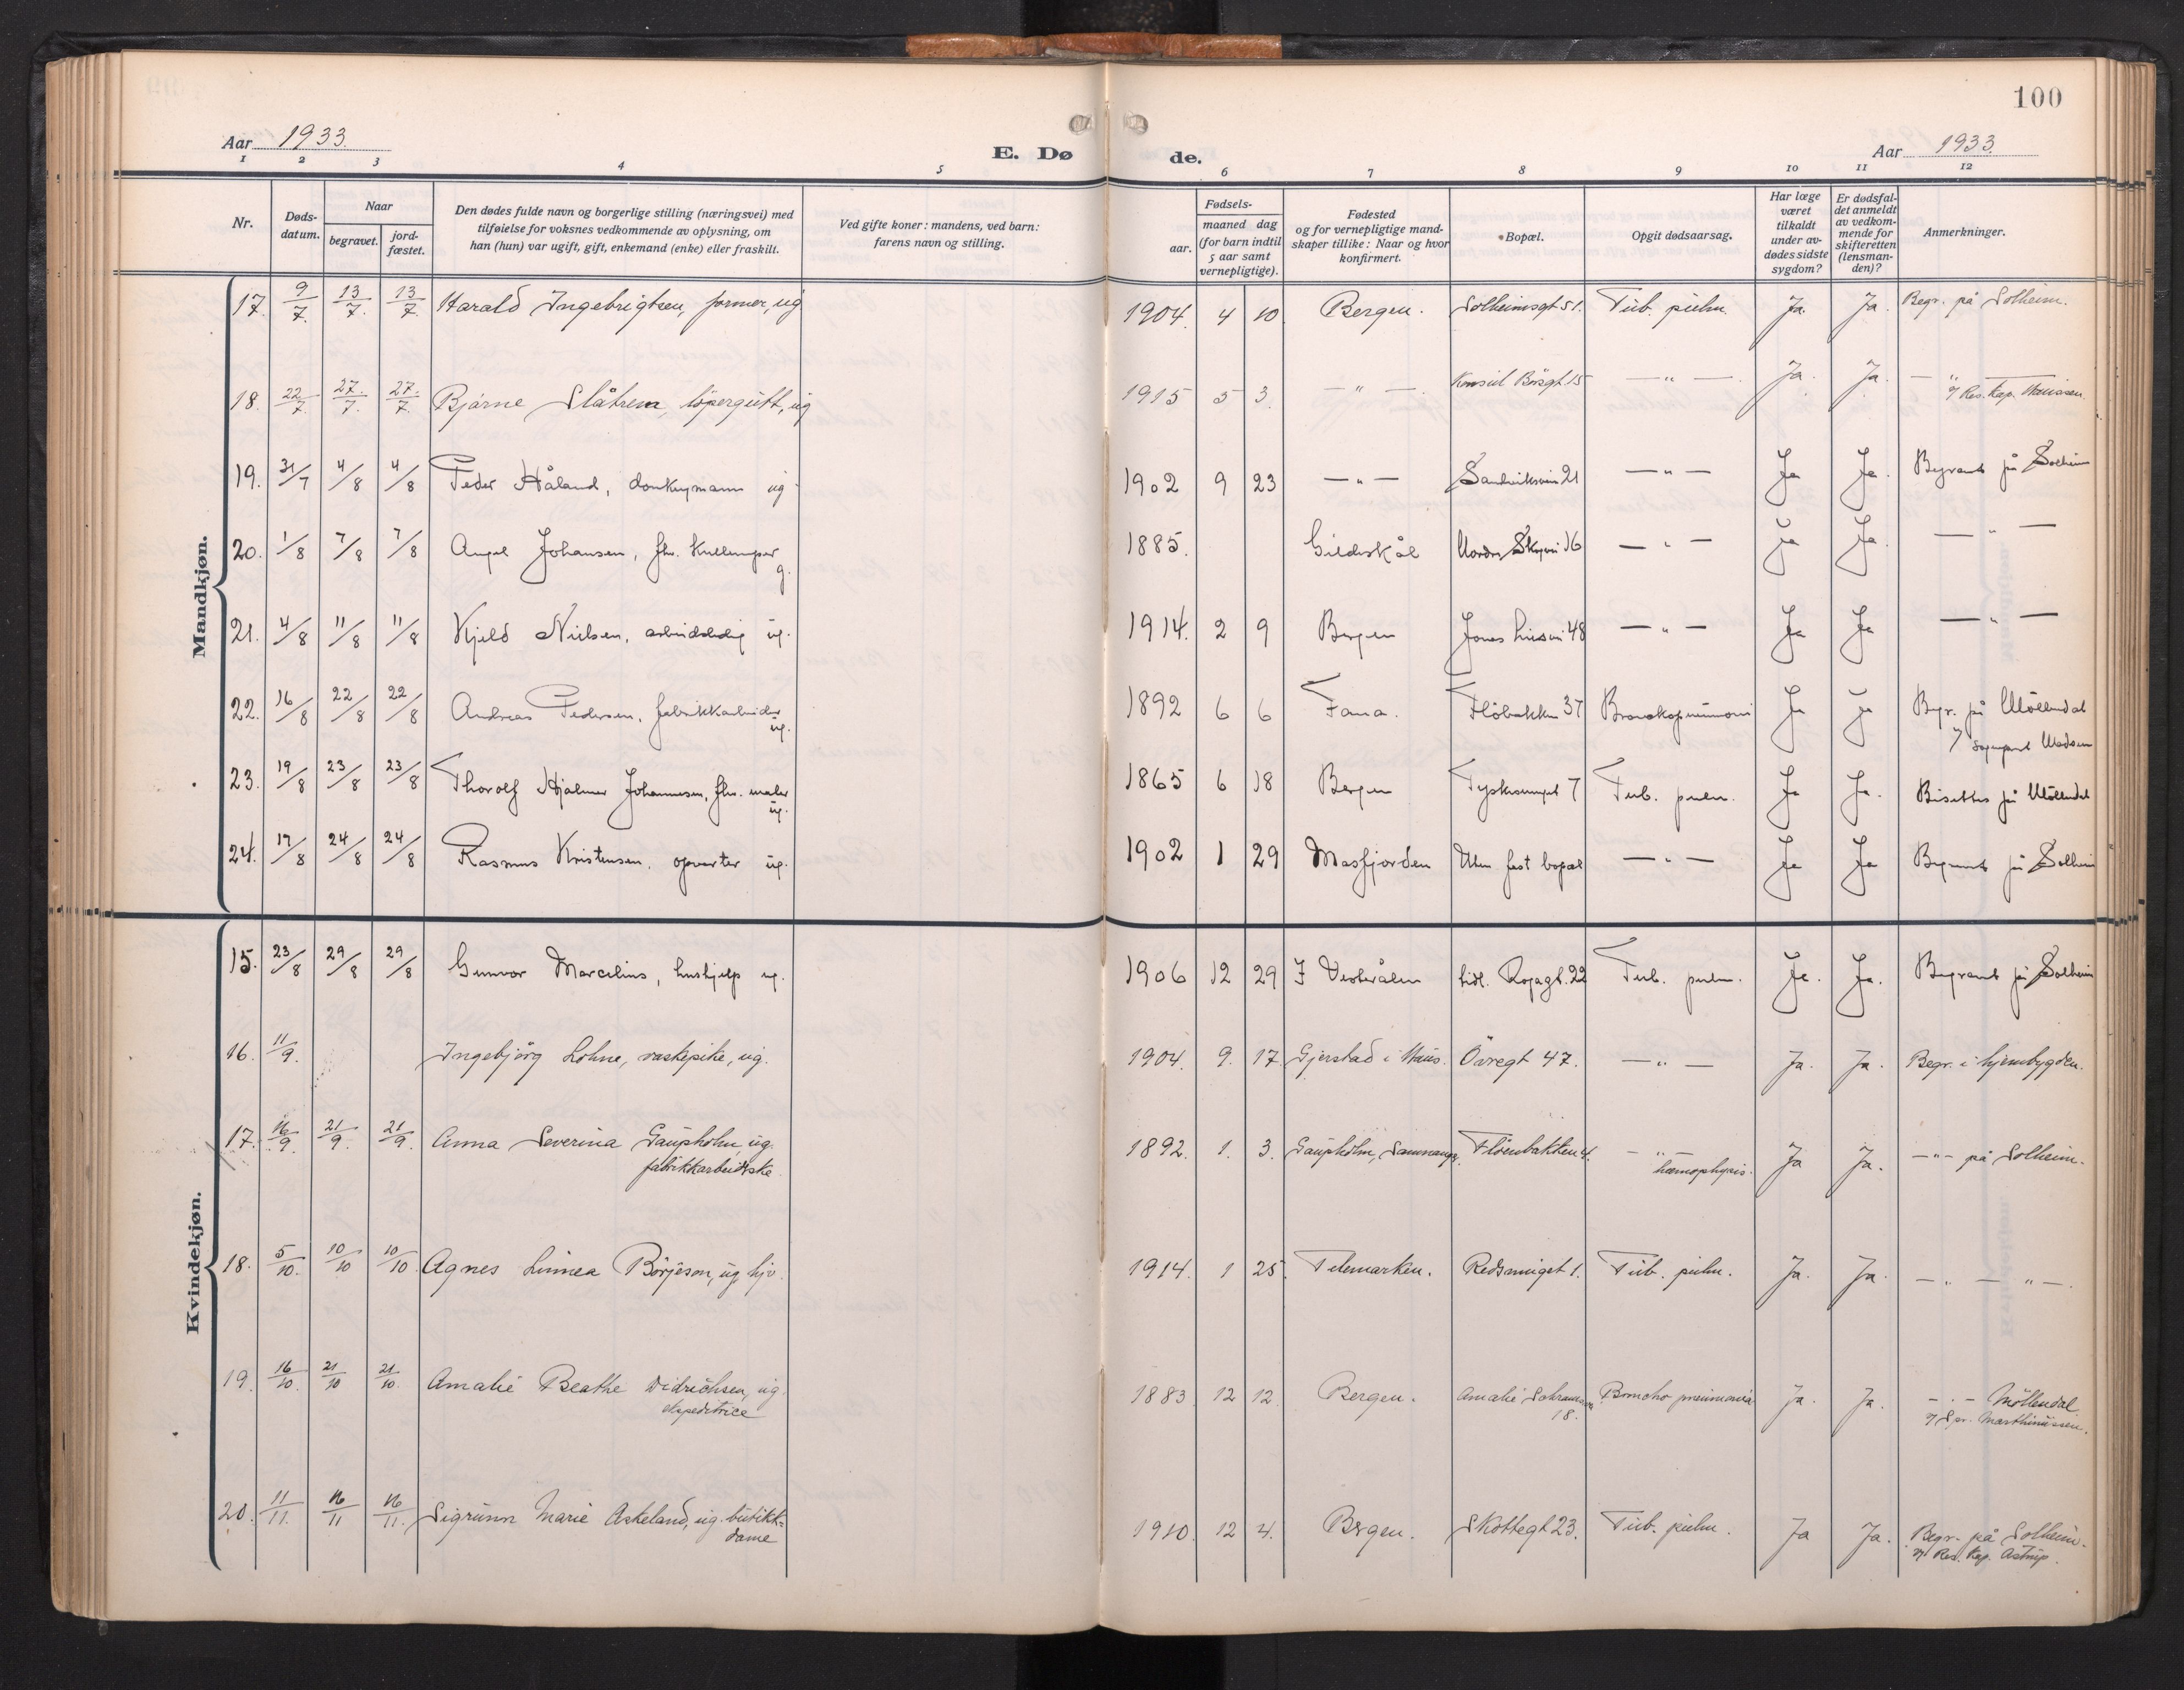 100
Aar 1933.
E. Dø
de.
Aar 1933.
1 2 3 4 5 6 7 8 9 10 11 12
Nr.
Døds-
datum.
Naar
begravet.
jord-
fæstet.
Den dødes fulde navn og borgerlige stilling (næringsvei) med
tilføielse for voksnes vedkommende av oplysning, om
han (hun) var ugift, gift, enkemand (enke) eller fraskilt.
Ved gifte koner: mandens, ved barn:
farens navn og stilling.
Fødsels-
aar.
maaned dag
(for barn indtil
5 aar samt
vernepligtige).
Fødested
og for vernepligtige mand-
skaper tillike: Naar og hvor
konfirmert.
Bopæl.
Opgit dødsaarsag.
Har læge
været
tilkaldt
under av-
dødes sidste
sygdom?
Er dødsfal-
det anmeldt
av vedkom-
mende for
skifteretten
(lensman-
den)?
Anmerkninger.
Mandkjøn.
17. 9/7. 13/7. 13/7. Harald Ingebrigtsen, former, ug. 1904. 4 10 Bergen. Solheimsgt 51. Tub. pulm. Ja. Ja. Begr. på Solheim.
18. 22/7. 27/7. 27/7. Bjarne Slåtren, löpergutt, ug 1915 5 3. — " — Konsul Börsgt 15 — " — Ja. Ja. — " —
v/ Res. Kap. Hanssen.
19. 31/7 4/8 4/8 Peder Håland, donkeymann ug. 1902 9 23 — " — Sandviksvei 21 — " — Ja Ja. Begravet på Solheim
20. 1/8 7/8 7/8 Johansen, fhv. g. 1885. Gildeskål Nordre Skogvei 16 — " — Ja Ja. — " —
21. 4/8 11/8 11/8 Kjeld Nielsen, arbeidsledig ug. 1914. 2 9 Bergen Jonas Liesvei 48 — " — Ja Ja — " —
22. 16/8 22/8 22/8 Andreas Pedersen, fabrikkarbeider ug. 1892 6 6 Fana. Flöbakken 37 Bronkopneumoni Ja Ja Begr. på Möllendal
v/ sogneprest Madsen
23. 19/8 23/8 23/8 Thorolf Hjalmar Johannesen, fhv. maler ug. 1865 6 18 Bergen Tyskesmuget 7 Tub. pulm. Ja Ja. Bisettes på Möllendal
24. 17/8 24/8 24/8 Rasmus Kristensen, opvarter ug. 1902 1 29 Masfjorden Uten fast bopæl — " — Ja Ja Begravet på Solheim
Kvindekjøn.
15. 23/8 29/8 29/8 Gunvor Marcelius, hushjelp ug. 1906 12 29 I Vesterålen tidl. 22 Tub. pulm. Ja. Ja. Begravet på Solheim
16. 11/9. Ingebjörg Lohne, vaskepike, ug. 1904. 9. 17. Gjerstad i Haus. Övregt 47. — " — Ja. Ja. Begr. i hjembygden.
17. 16/9. 21/9. 21/9. Anna Severina Gaupholm, ug. 1892. 1. 3. Gaupholm, Samnanger. Flöenbakken 4. — " — Ja Ja. — " — på Solheim.
fabrikkarbeiderske. hæmophysis.
18. 5/10. 10/10 10/10 Agnes Linnea Börjeson, ug. hjv. 1914. 1 25. Telemarken. Redsmuget 1. Tub. pulm. Ja. Ja. — " — " —.
19. 16/10. 21/10 21/10. Amalie Beathe Didrichsen, ug. 1883. 12 12. Bergen. Amalie Schramsvei Broncho pneumonia Ja. Ja. — " — Möllendal
ekspeditrice 18. v/ Spr. Marthinussen.
20. 11/11. 16/11 16/11. Sigrunn Marie Askeland, ug. butikk- 1910. 12 4. Bergen. Skottegt 23. Tub. pulm. Ja Ja. Begr. på Solheim.
dame v/ Res. Kap. Astrup.